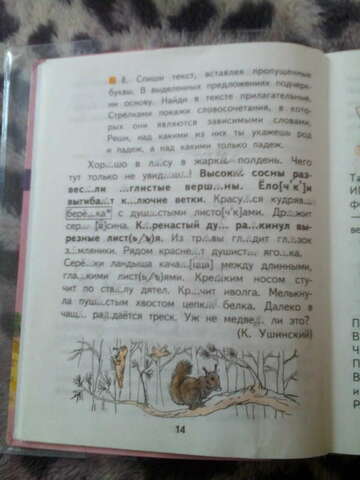 6. Спиши текст, вставляя пропущенные
буквы. В выделенных предложениях подчерк-
ни основу. Найди в тексте прилагательные.
Стрелками покажи словосочетания, в кото-
рых они являются зависимыми словами.
Реши, над какими из них ты укажешь род
и падеж, а над какими только падеж.
Хор...шо в л...су в жаркий полдень. Чего
тут только не увид...шь! Высокие сосны раз-
вес...ли ...глистые верш...ны. Ёло[ч'к']и
выгиба...т к...лючие ветки. Красу...ся кудряв...
берё...ка* с душ...стыми листо[ч'к]ами. Др...жит
сер... [а]сина. К...ренастый ду... ра...кинул
вырезные лист(ь/ъ)я. Из тр...вы гл...дит глазок
з...мляники. Рядом краснеет душист... яго...ка.
Серё...ки ландыша кача...[цца] между длинными,
гла...кими лист(ь/ъ)ями. Креп...ким носом сту-
чит по ств...лу дятел. Кр...чит иволга. Мелькну-
ла пуш...стым хвостом цепк... белка. Далеко в
чащ... ра...даётся треск. Уж не медве... ли это?
(К. Ушинский)
14